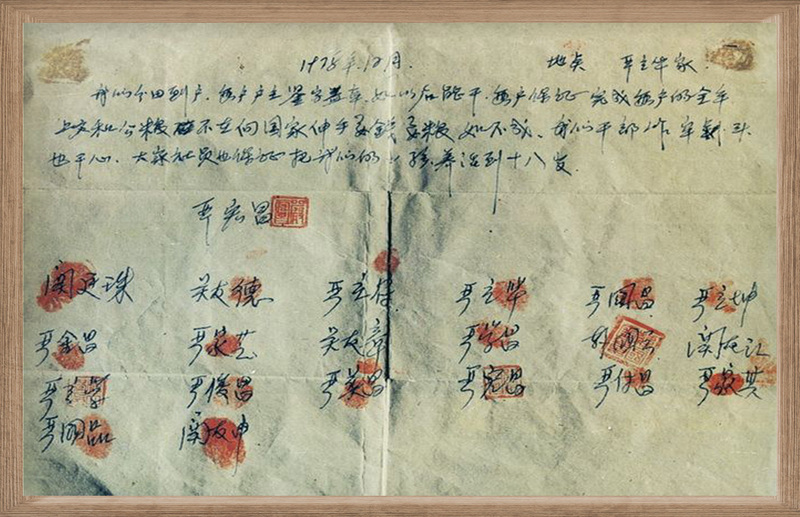 1978年12月. 地点 严立华家.
我们分田到户,每户户主签字盖章,如以后能干,每户保证完成每户的全年
上交和公粮。不在向国家伸手要钱要粮,如不成、我们干部作牢刹头
也干心、大家社员也保证把我们的小孩养活到十八岁.
严宏昌
関廷珠 关友德 严立符 严立华 严国昌 严立坤
严金昌 严家芝 关友章 严学昌 韩国云 関友江
严立学 严俊昌 严美昌 严宏昌 严付昌 严家其
严国品 関友申